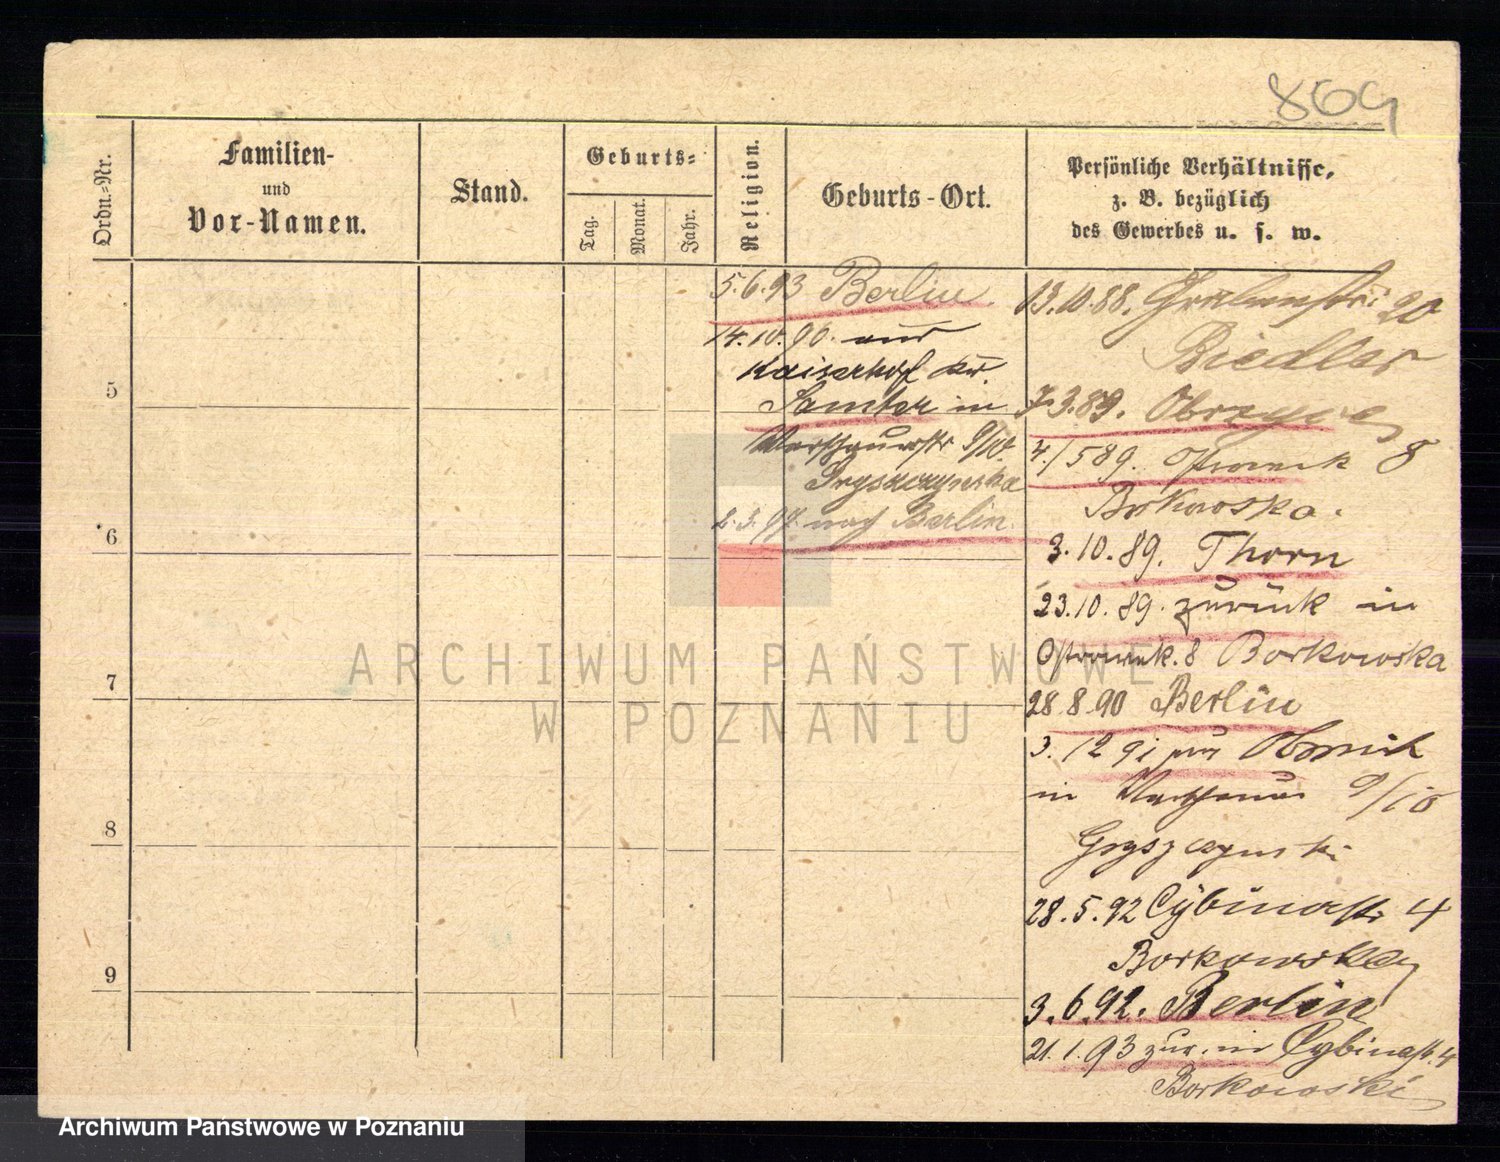 869
Ordn.-Nr.
Familien-
und
Vor-Namen.
Stand.
Geburts-
Tag.
Monat.
Jahr.
Religion.
Geburts-Ort.
Persönliche Verhältnisse,
z. B. bezüglich
des Gewerbes u. s. w.
5
6
7
8
9
5.6.93 Berlin
14.10.96. aus
Kaiserhof Kr.
Samter in
9/10.
Gryszczynska
2.3.97. nach Berlin
13.10.88. 20
Biedler
7.3.89.
4./5 89. Ostroweck 8
Borkowska.
3.10.89. Thorn
23.10.89. zurück in
Ostrowek. 8 Borkowska
28.8.90 Berlin
3. 12 91 aus Obornik
in Warschauer 9/10
Gryszczynski
28.5.92 Cybinastr 4
Borkowska
3.6.92. Berlin
21.1.93 zur. in Cybinastr. 4
Borkowski
ARCHIWUM PAŃSTWOWE
W POZNANIU
Archiwum Państwowe w Poznaniu